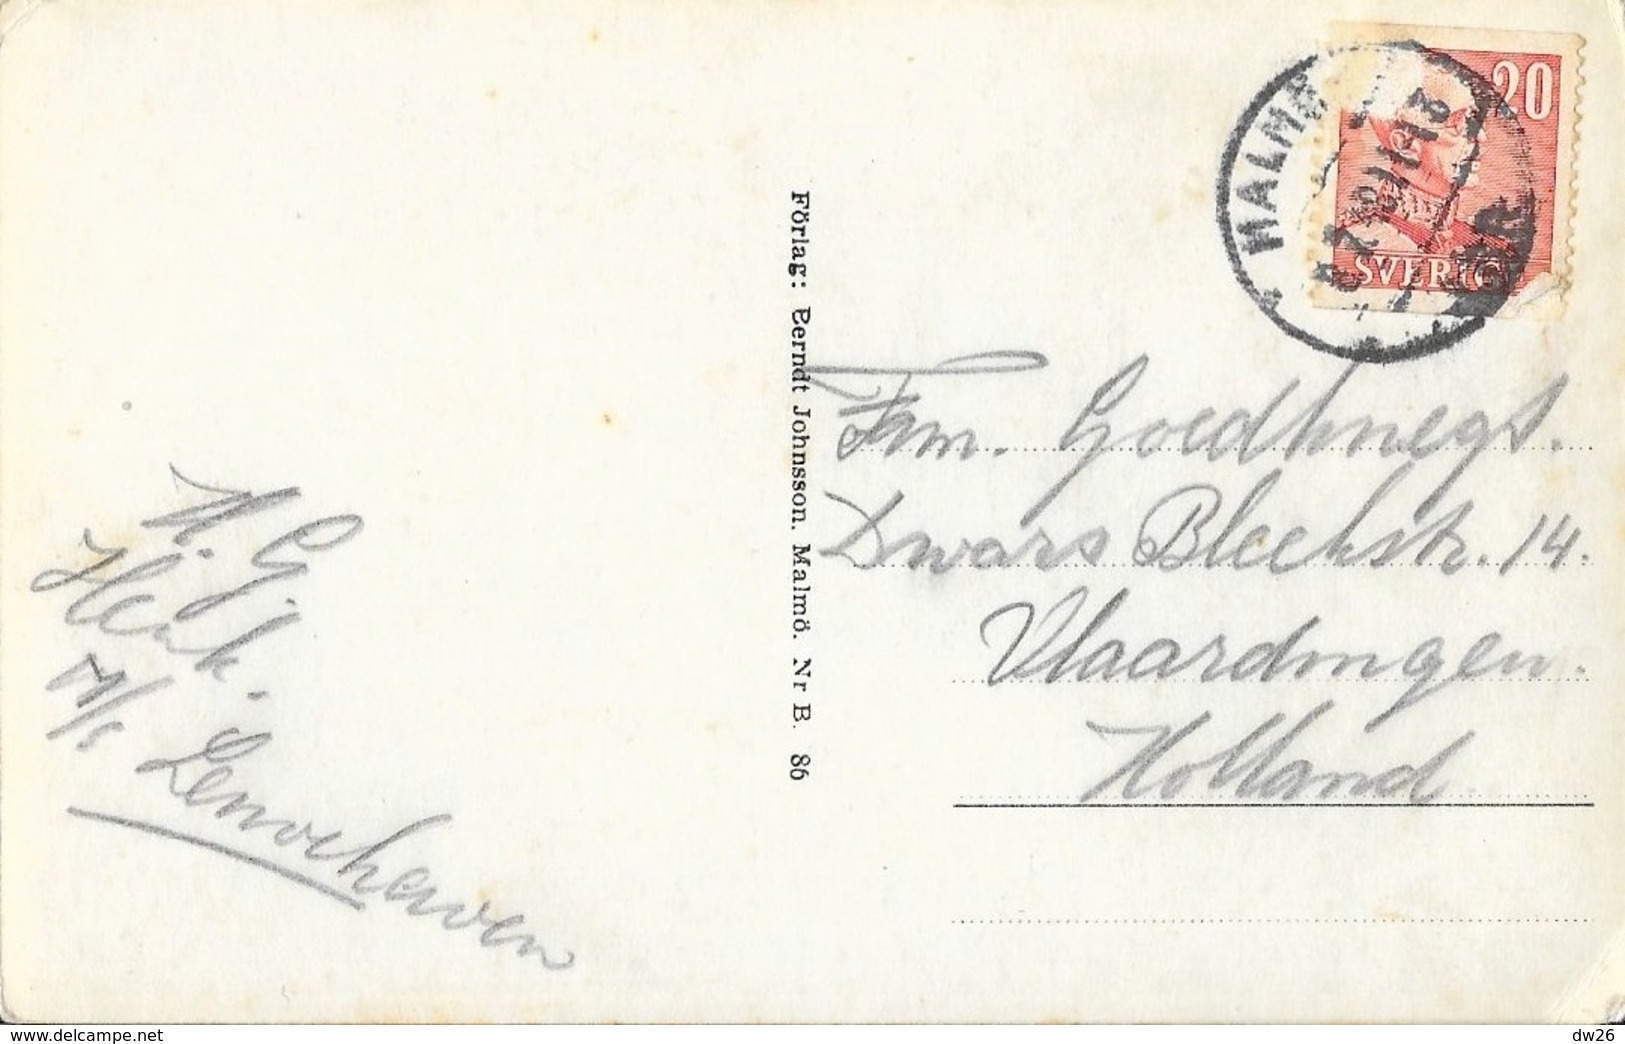 MALMÖ
20
SVERIGE
Förlag: Berndt Johnsson. Malmö. Nr B. 86
Fam. Goedknegt.
Dwars Blekstr. 14.
Vlaardingen.
Holland.
H. G
Henk.
M/S
delcampe.net
dw26